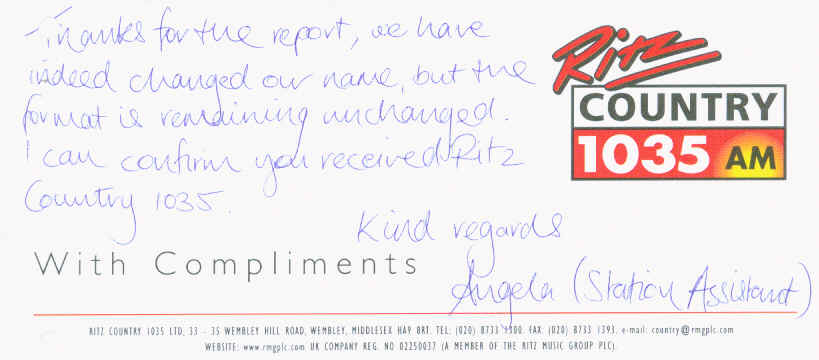 Thanks for the report, we have
indeed changed our name, but the
format is remaining unchanged.
I can confirm you received Ritz
Country 1035.
Kind regards
Angela (Station Assistant)
Ritz
COUNTRY
1035 AM
With Compliments
RITZ COUNTRY 1035 LTD, 33 - 35 WEMBLEY HILL ROAD, WEMBLEY, MIDDLESEX HA9 8RT. TEL: (020) 8733 1300. FAX (020) 8733 1393. e-mail: country@rmgplc.com
WEBSITE: www.rmgplc.com UK COMPANY REG. NO 02250037 (A MEMBER OF THE RITZ MUSIC GROUP PLC).